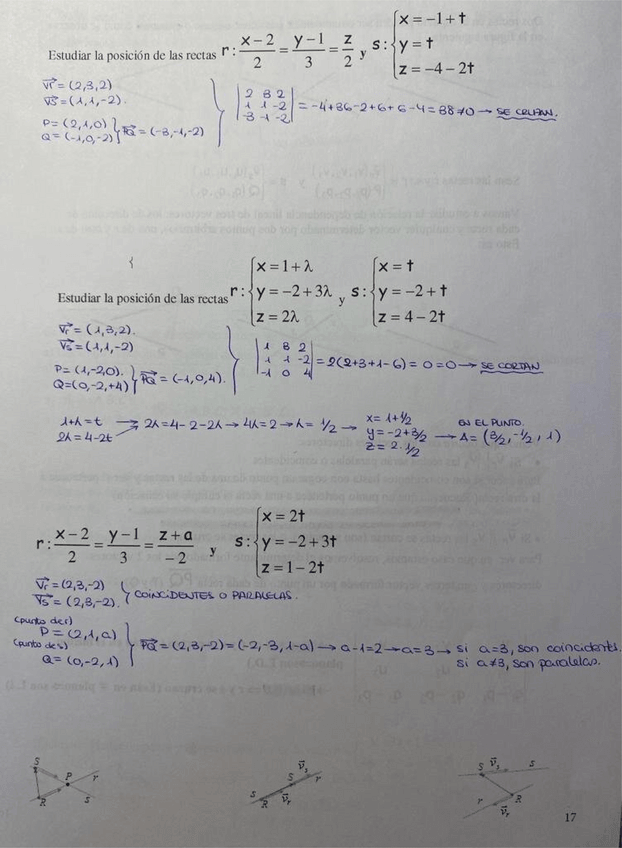 Estudiar la posición de las rectas r: (x-2)/2 = (y-1)/3 = z/2 y s: { x = -1+t
y = t
z = -4-2t
Vr = (2,3,2)
Vs = (1,1,-2).
P = (2,1,0)
Q = (-1,0,-2) } PQ = (-3,-1,-2)
| 2 3 2 |
| 1 1 -2 |
| -3 -1 -2 | = -4+36-2+6+6-4=38≠0 → SE CRUZAN.
{
Estudiar la posición de las rectas r: { x = 1+λ
y = -2+3λ
z = 2λ y s: { x = t
y = -2+t
z = 4-2t
Vr = (1,3,2).
Vs = (1,1,-2)
P = (1,-2,0).
Q=(0,-2,+4) } PQ = (-1,0,4).
| 1 3 2 |
| 1 1 -2 |
| -1 0 4 | = 2(2+3+1-6) = 0=0 → SE CORTAN
1+λ=t
2λ=4-2t → 2λ=4-2-2λ → 4λ=2 → λ= 1/2 → x= 1+1/2
y=-2+3/2
z= 2·1/2 → EN EL PUNTO.
A= (3/2,-1/2,1)
r: (x-2)/2 = (y-1)/3 = (z+a)/-2 y s: { x = 2t
y = -2+3t
z = 1-2t
Vr=(2,3,-2)
Vs = (2,3,-2). } COINCIDENTES O PARALELAS.
(punto de r)
P = (2,1,a)
(punto de s)
Q = (0,-2,1) } PQ = (2,3,-2)=(-2,-3,1-a) → a-1=2 → a=3 → si a=3, son coincidents.
si a≠3, son paralelas.
S P r
R s
s R Vr S Vs r
S Vs s
r Vr R
17